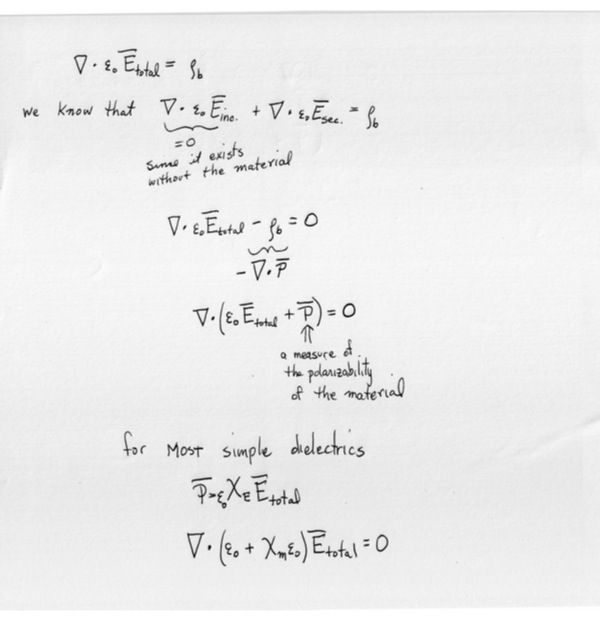 ∇ · ε₀ E̅total = ρb
we know that ∇ · ε₀ E̅inc. + ∇ · ε₀ E̅sec. = ρb
= 0
since it exists
without the material
∇ · ε₀ E̅total − ρb = 0
− ∇ · P̅
∇ · (ε₀ E̅total + P̅) = 0
⇑
a measure of
the polarizability
of the material
for Most simple dielectrics
P̅ = ε₀ χE E̅total
∇ · (ε₀ + χm ε₀) E̅total = 0